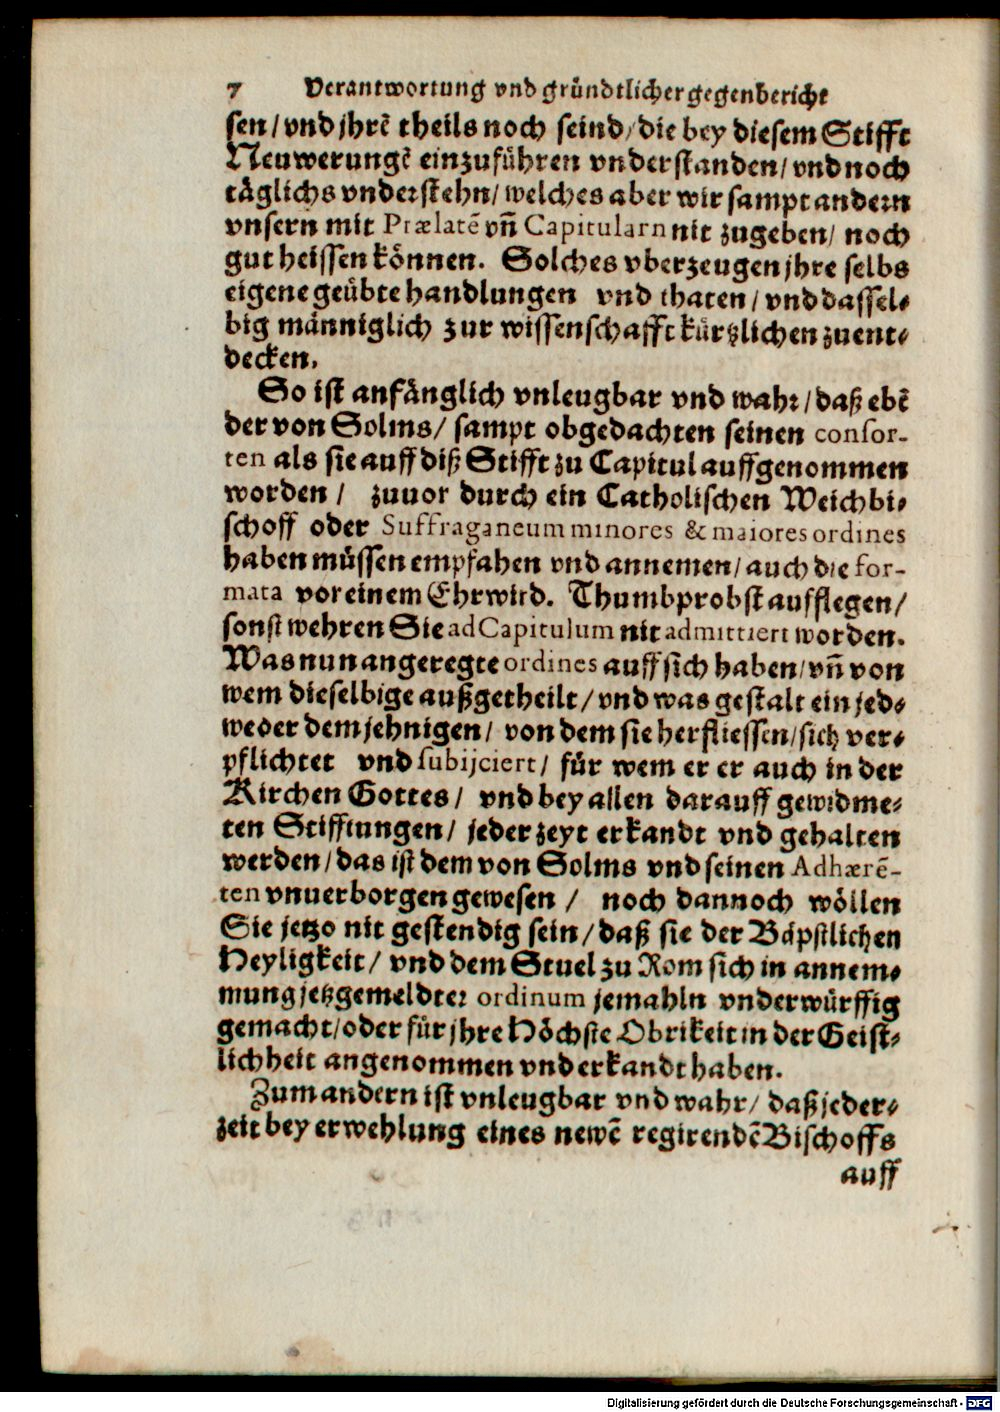 7 Verantwortung vnd gründtlicher gegenbericht
sen / vnd jhrē theils noch seind / die bey diesem Stifft
Neuwerungē einzuführen vnderstanden / vnd noch
täglichs vnderstehn / welches aber wir sampt andern
vnsern mit Prælatē vñ Capitularn nit zugeben / noch
gut heissen können. Solches vberzeugen jhre selbs
eigene geübte handlungen vnd thaten / vnd dassel-
big männiglich zur wissenschafft kürtzlichen zuent-
decken.
So ist anfänglich vnleugbar vnd wahr / daß ebē
der von Solms / sampt obgedachten seinen consor-
ten als sie auff diß Stifft zu Capitul auffgenommen
worden / zuuor durch ein Catholischen Weichbi-
schoff oder Suffraganeum minores & maiores ordines
haben müssen empfahen vnd annemen / auch die for-
mata vor einem Ehrwird. Thumbprobst aufflegen /
sonst wehren Sie ad Capitulum nit admittiert worden.
Was nun angeregte ordines auff sich haben / vñ von
wem dieselbige außgetheilt / vnd was gestalt ein jed-
weder dem jehnigen / von dem sie herfliessen / sich ver-
pflichtet vnd subijciert / für wem er er auch in der
Kirchen Gottes / vnd bey allen darauff gewidme-
ten Stifftungen / jeder zeyt erkandt vnd gehalten
werden / das ist dem von Solms vnd seinen Adhærē-
ten vnuerborgen gewesen / noch dannoch wöllen
Sie jetzo nit gestendig sein / daß sie der Bäpstlichen
Heyligkeit / vnd dem Stuel zu Rom sich in annem-
mung jetzgemeldter ordinum jemahln vnderwürffig
gemacht / oder für jhre Höchste Obrikeit in der Geist-
lichheit angenommen vnd erkandt haben.
Zum andern ist vnleugbar vnd wahr / daß jeder-
zeit bey erwehlung eines newē regirendē Bischoffs
auff
Digitalisierung gefördert durch die Deutsche Forschungsgemeinschaft - DFG